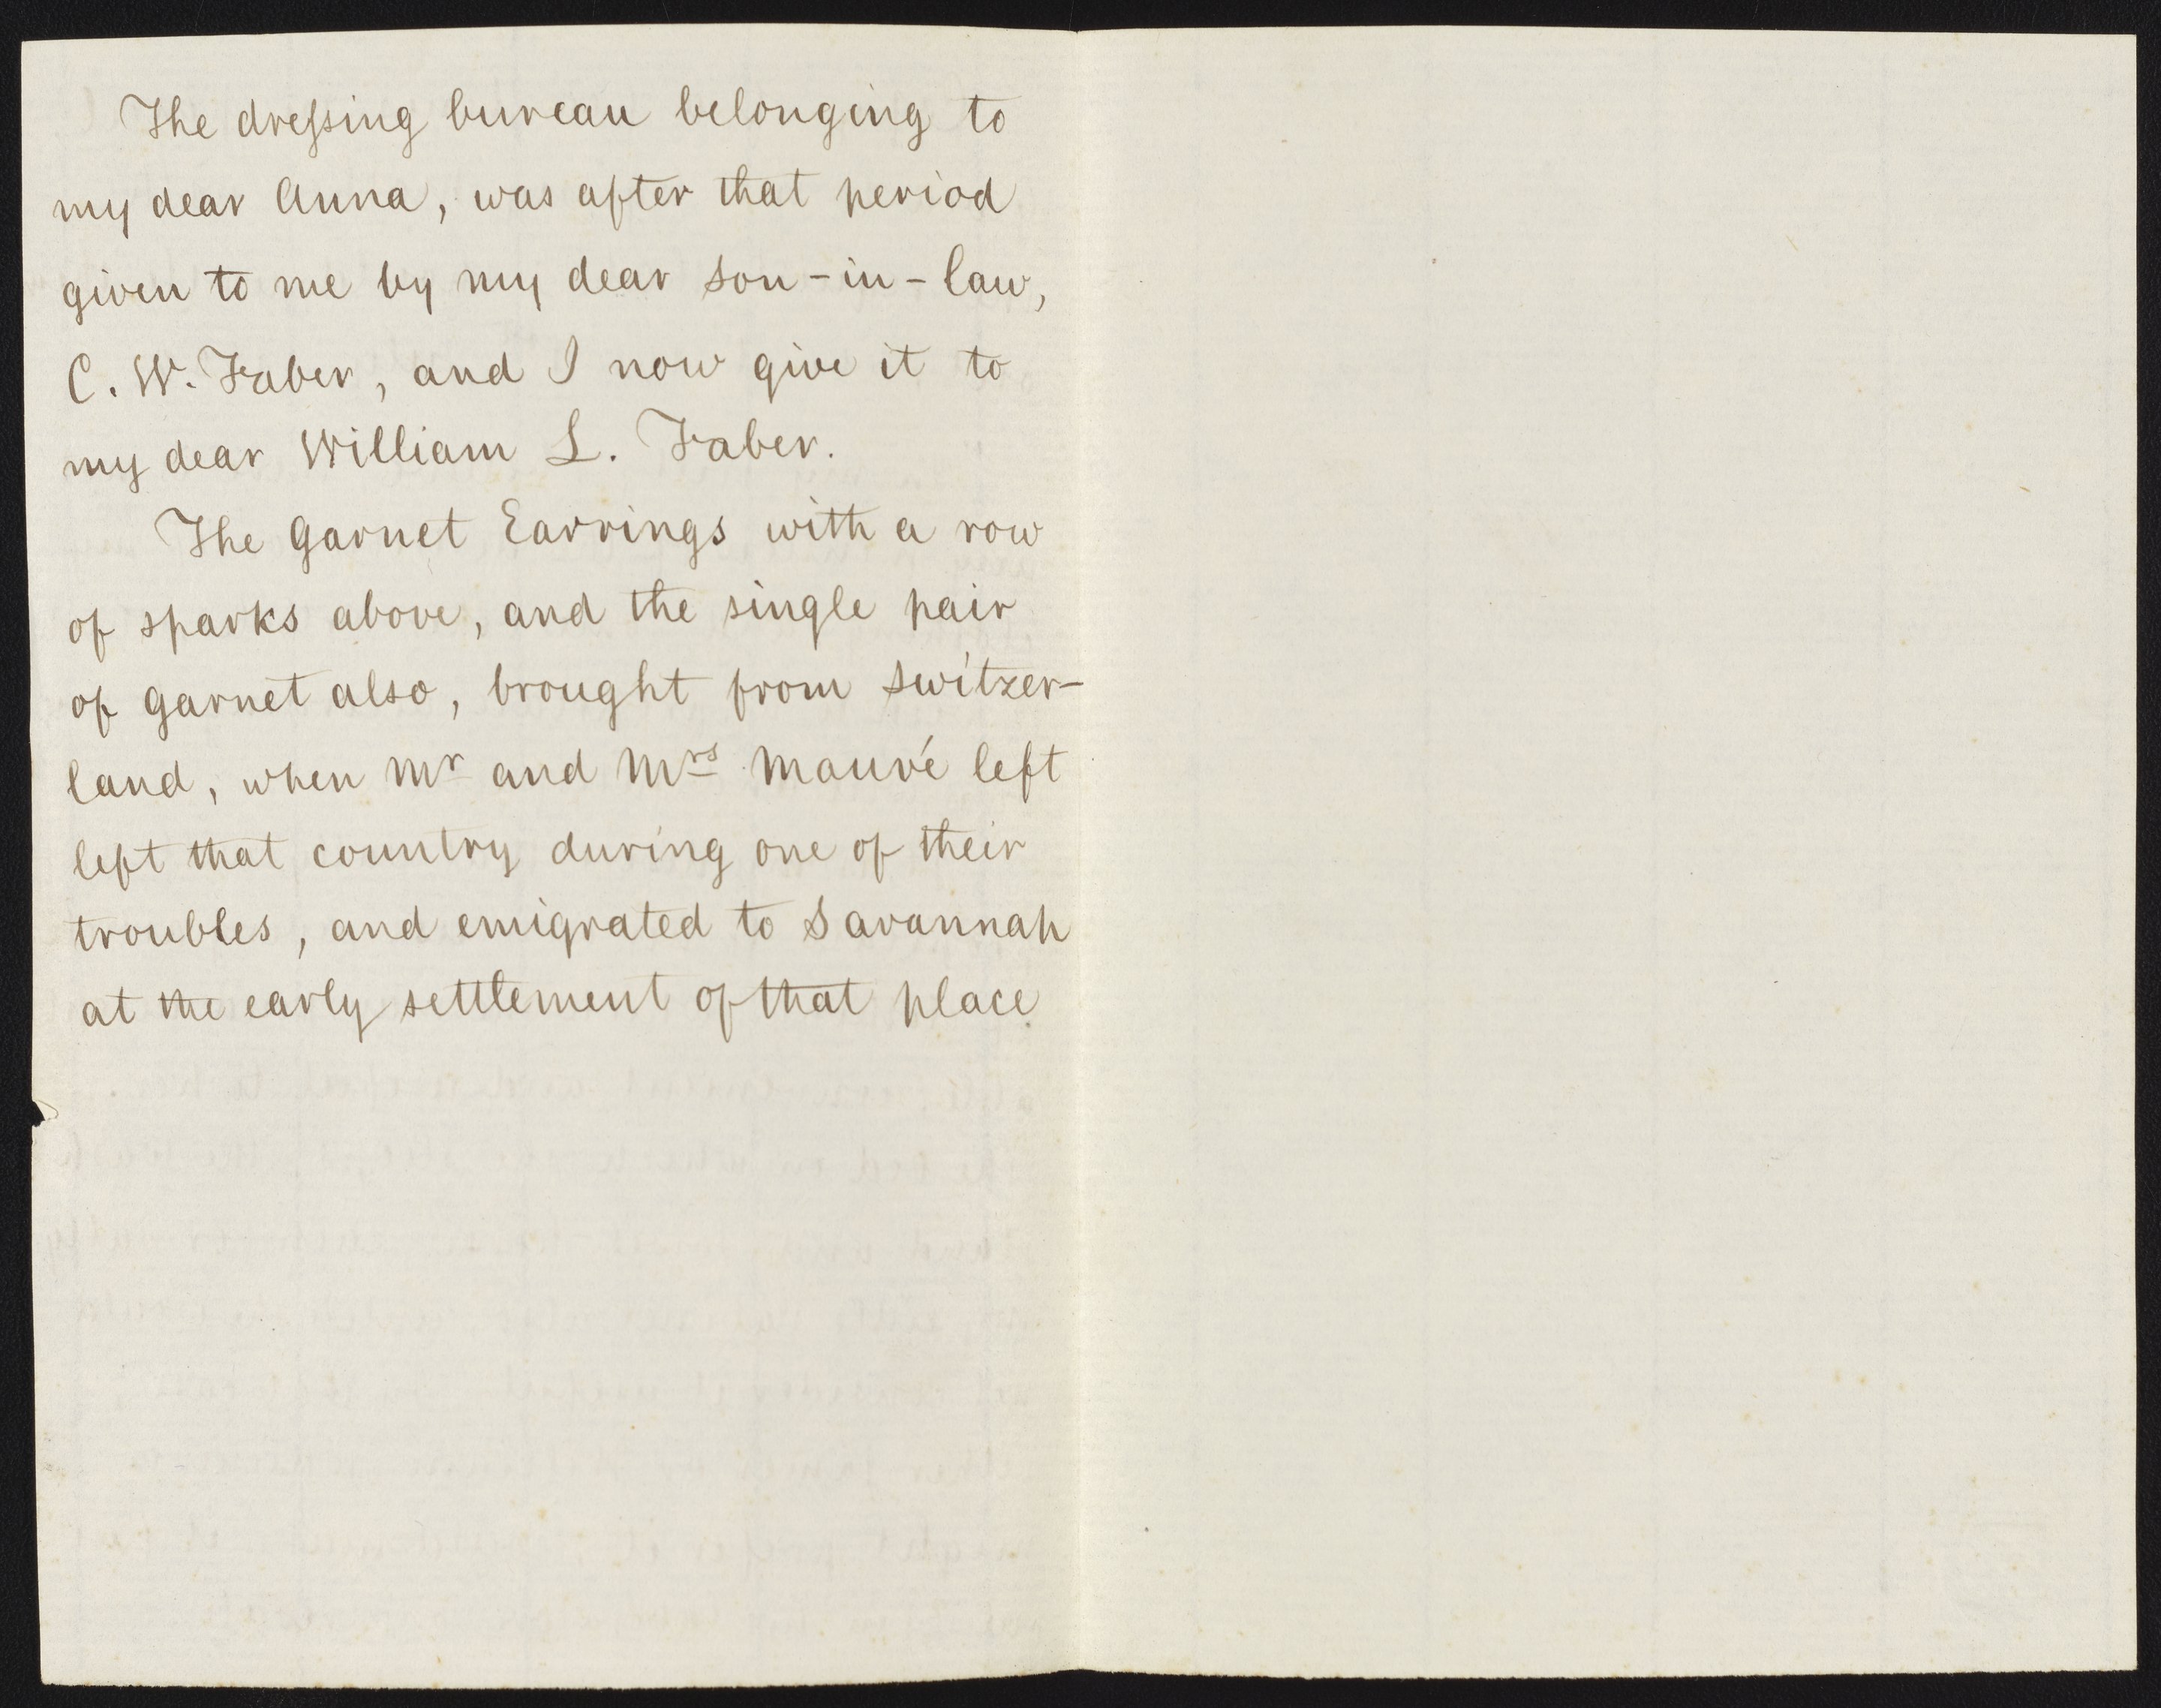 The dressing bureau belonging to
my dear Anna, was after that period
given to me by my dear son-in-law,
C. W. Faber, and I now give it to
my dear William L. Faber.
The Garnet Earrings with a row
of sparks above, and the single pair
of garnet also, brought from Switzer-
land, when Mr and Mrs Mauvé left
left that country during one of their
troubles, and emigrated to Savannah
at the early settlement of that place